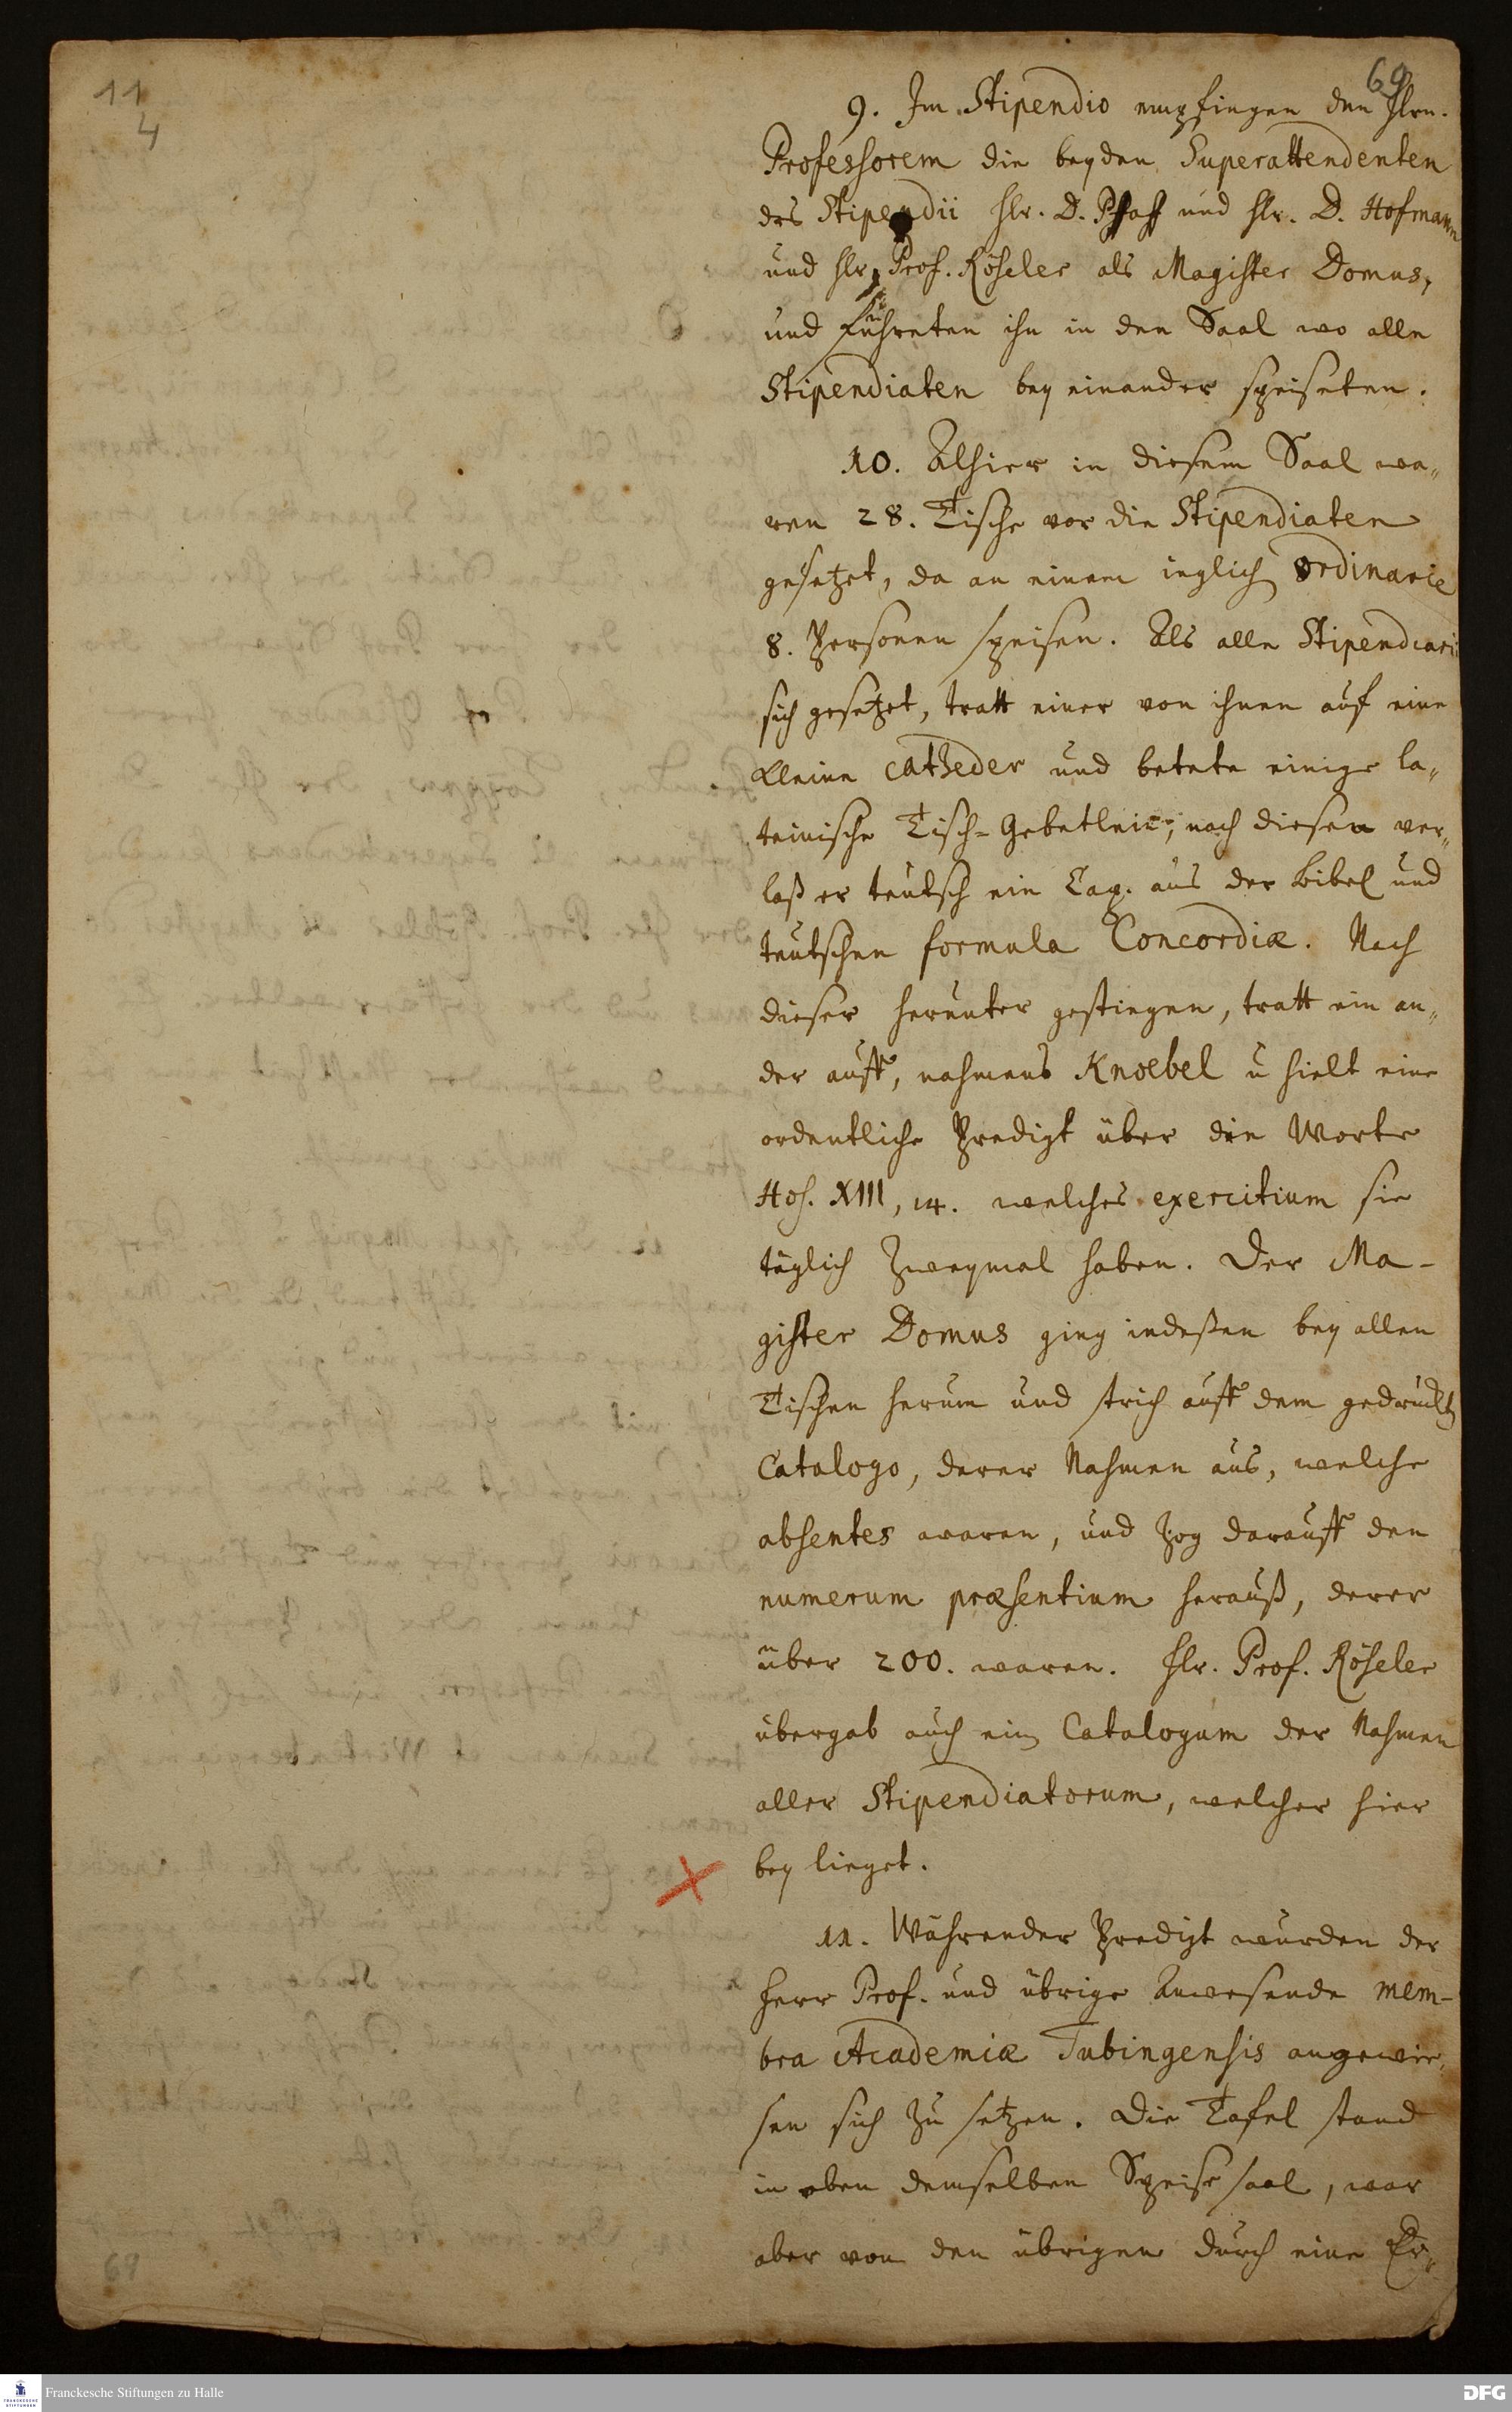 11
4
69
9. Im Stipendio empfingen den Hrn.
Professorem die beyden Superattendenten
des Stipendii Hr. D. Pfaff und Hr. D. Hofmann
und Hr. Prof. Röseler als Magister Domus,
und führeten ihn in den Saal wo alle
Stipendiaten bey einander speiseten.
10. Alhier in diesem Saal wa„
ren 28. Tische vor die Stipendiaten
gesetzet, da an einem ieglich ordinarie
8. Personen speisen. Als alle Stipendiarii
sich gesetzet, tratt einer von ihnen auf eine
kleine Catheder und betete einige la„
teinische Tisch-Gebetlein, nach diesen ver„
laß er teutsch ein Cap. aus der Bibel und
teutschen formula Concordiæ. Nach
dieser herunter gestiegen, tratt ein an„
der auff, nahmens Knoebel u hielt eine
ordentliche Predigt über die Worte
Hos. XIII, 14. welches exercitium sie
täglich zweymal haben. Der Ma-
gister Domus ging indeßen bey allen
Tischen herum und strich auff dem gedruckten
Catalogo, derer Nahmen aus, welche
absentes waren, und zog darauff den
numerum præsentium herauß, derer
über 200. waren. Hr. Prof. Röseler
übergab auch ein Catalogum der Nahmen
aller Stipendiatorum, welcher hier
bey lieget.
11. Währender Predigt wurden der
Herr Prof. und übrige Anwesende mem-
bra Academiæ Tubingensis angewie„
sen sich zu setzen. Die Tafel stand
in eben demselben Speise saal, war
aber von den übrigen durch eine Er„
Franckesche Stiftungen zu Halle
DFG